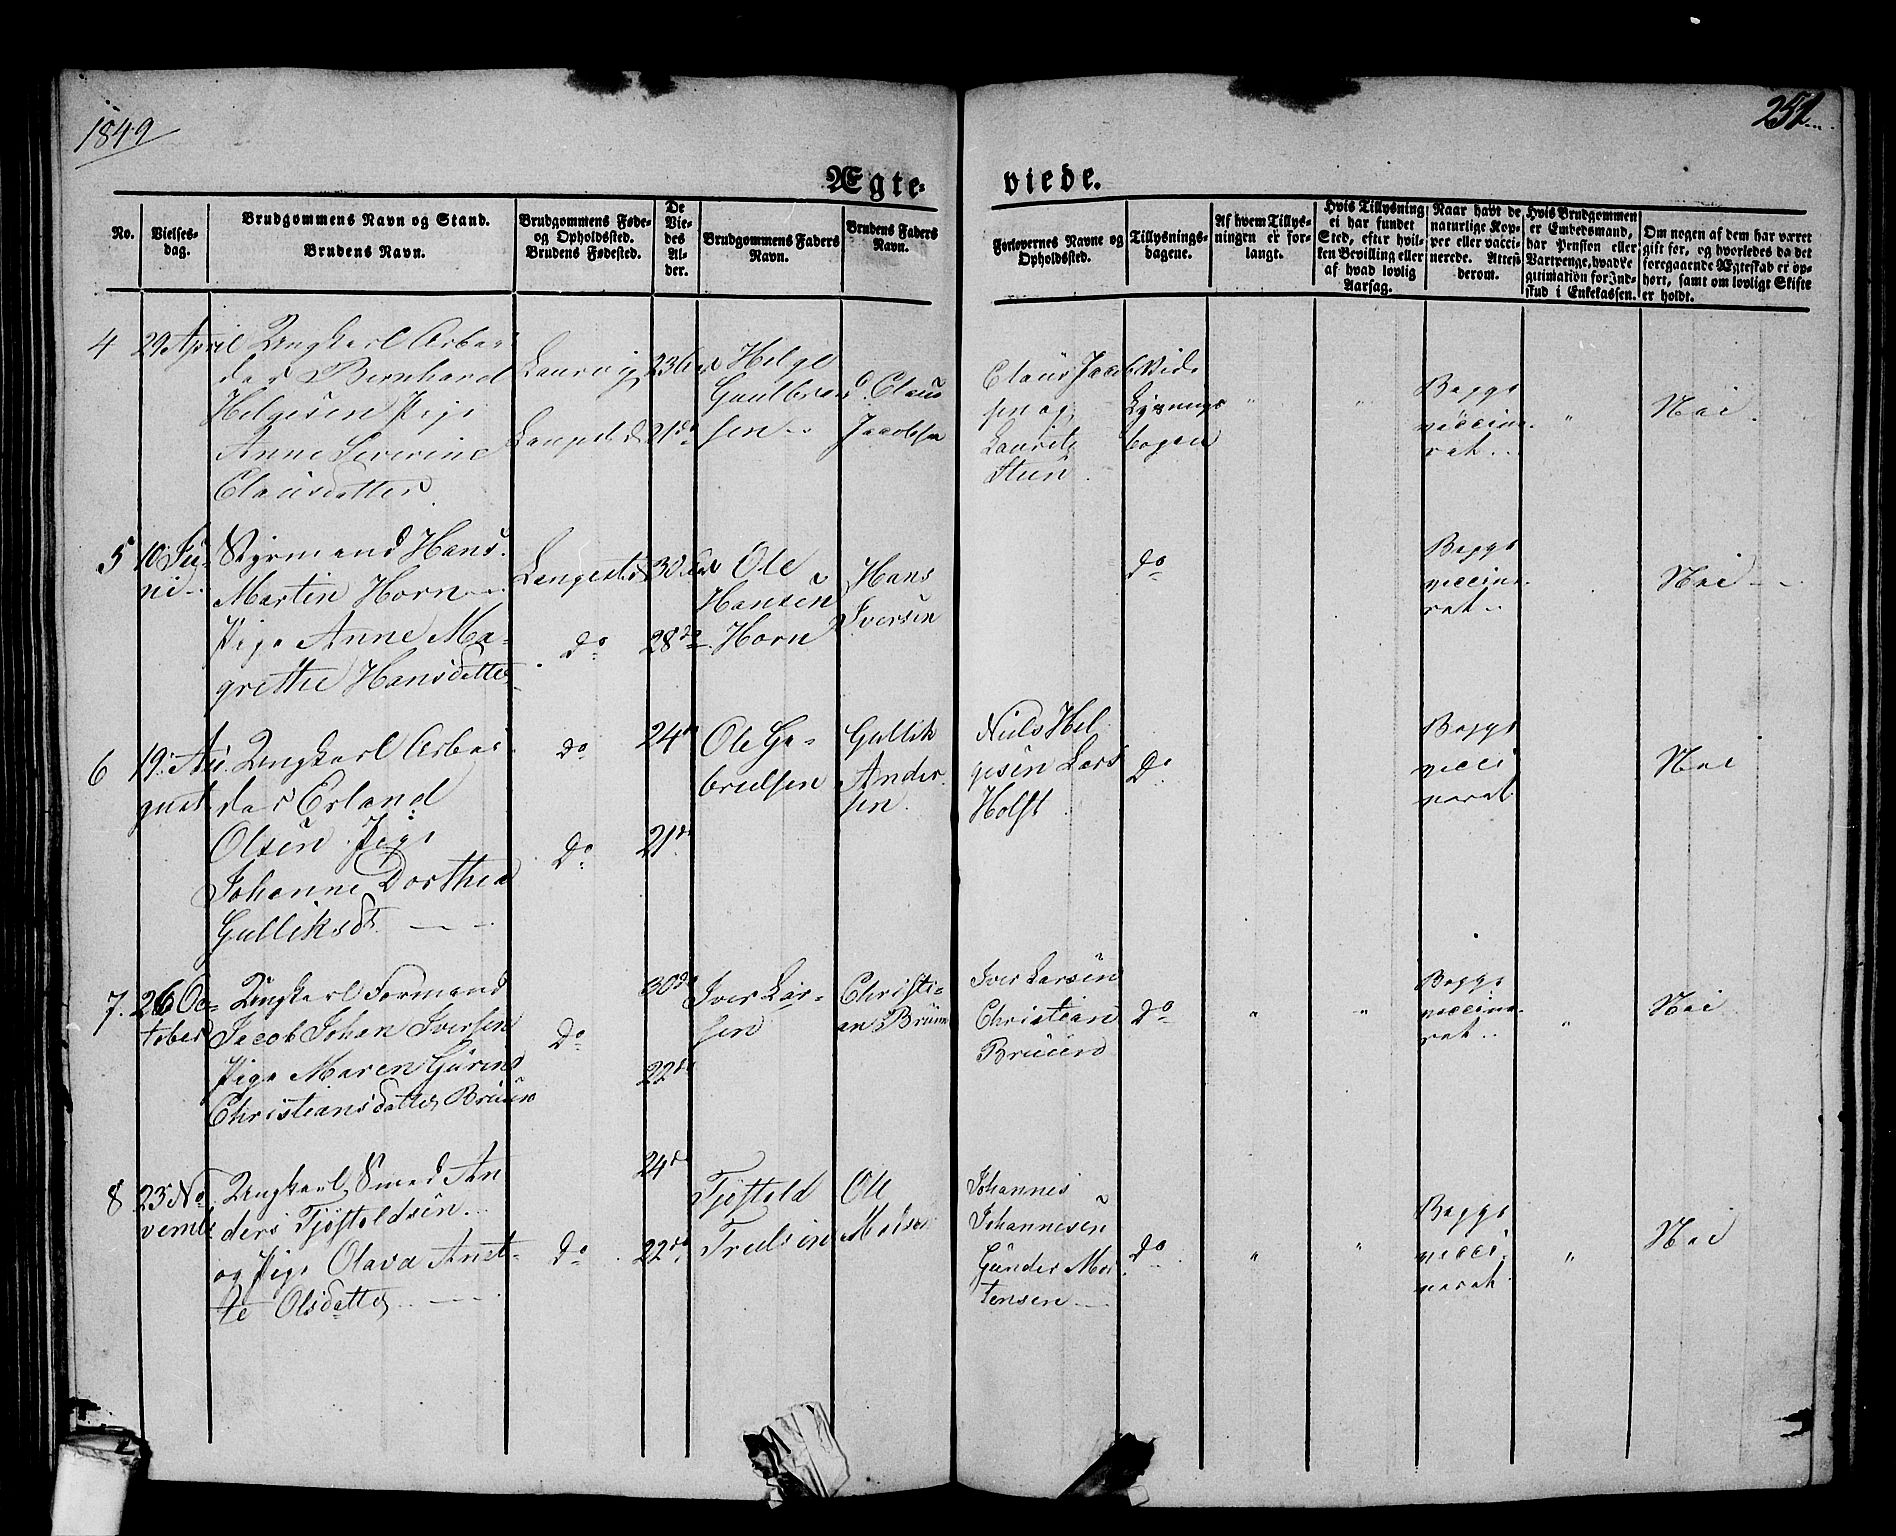 1849
251
Ægte-
viede.
No.
Vielses-
dag.
Brudgommens Navn og Stand.
Brudens Navn.
Brudgommens Føde-
og Opholdssted.
Brudens Fødested.
De
Vie-
des
Al-
der.
Brudgommens Faders
Navn.
Brudens Faders
Navn.
Forlovernes Navne og
Opholdssted.
Tillysnings-
dagene.
Af hvem Tillys-
ningen er for-
langt.
Hvis Tillysning
ei har fundet
Sted, efter hvil-
ken Bevilling eller
af hvad lovlig
Aarsag.
Naar havt de
naturlige Kop-
per eller vacci-
nerede. Attest
derom.
Hvis Brudgommen
er Embedsmand,
har Pension eller
Vartpenge, hvad Le-
gitimation for Ind-
skud i Enkekassen.
Om nogen af dem har været
gift før, og hvorledes da det
foregaaende Ægteskab er op-
hørt, samt om lovligt Skifte
er holdt.
4
29 April
Ungkarl Arbei
der Bernhard
Helgesen Pige
Anne Severine
Clausdatter
Laurvig
Langestd
23
21 do
Helge
Gulbrand
sen
Claus
Jacobsen
Claus Jacob
sen og
Lauritz
Steen
Vide
Lysnings
bogen
"
"
Begge
vaccine-
ret
"
Nei
5
10 Ju-
ni
Styrmand Hans
Martin Horn
Pige Anne Ma-
grethe Hansdatter
Langestd
do
30
28 do
Ole
Hansen
Horn
Hans
Iversen
do
Begge
vaccine-
ret
Nei
6
19 Au-
gust
Ungkarl Arbei-
der Erland
Olsen Pige
Johanne Dorthea
Gulliksdt
do
do
24 do
21 do
Ole Ga-
brielsen
Gullik
Ander-
sen
Niels Hel
gesen Lars
Holst
do
Begge
vacci
neret
Nei
7.
26 Oc-
tober
Ungkarl Formand
Jacob Johan Iversen
Pige Maren
Christiansdatter Bruun
do
30 do
22 do
Iver Lar-
sen
Christi-
an Bruun
Iver Larsen
Christian
Bruun
do
"
"
Begge
vaccine-
ret
"
Nei
8
23 No
vembr
Ungkarl Smed An
ders Tjøstoldsen
og Pige Olava Anet-
te Olsdatter
do
24 do
22 do
Tjøstold
Truelsen
Ole
Johannes
Johannesen
Gunder Mor
tensen
do
"
"
Begge
vacci-
neret
"
Nei